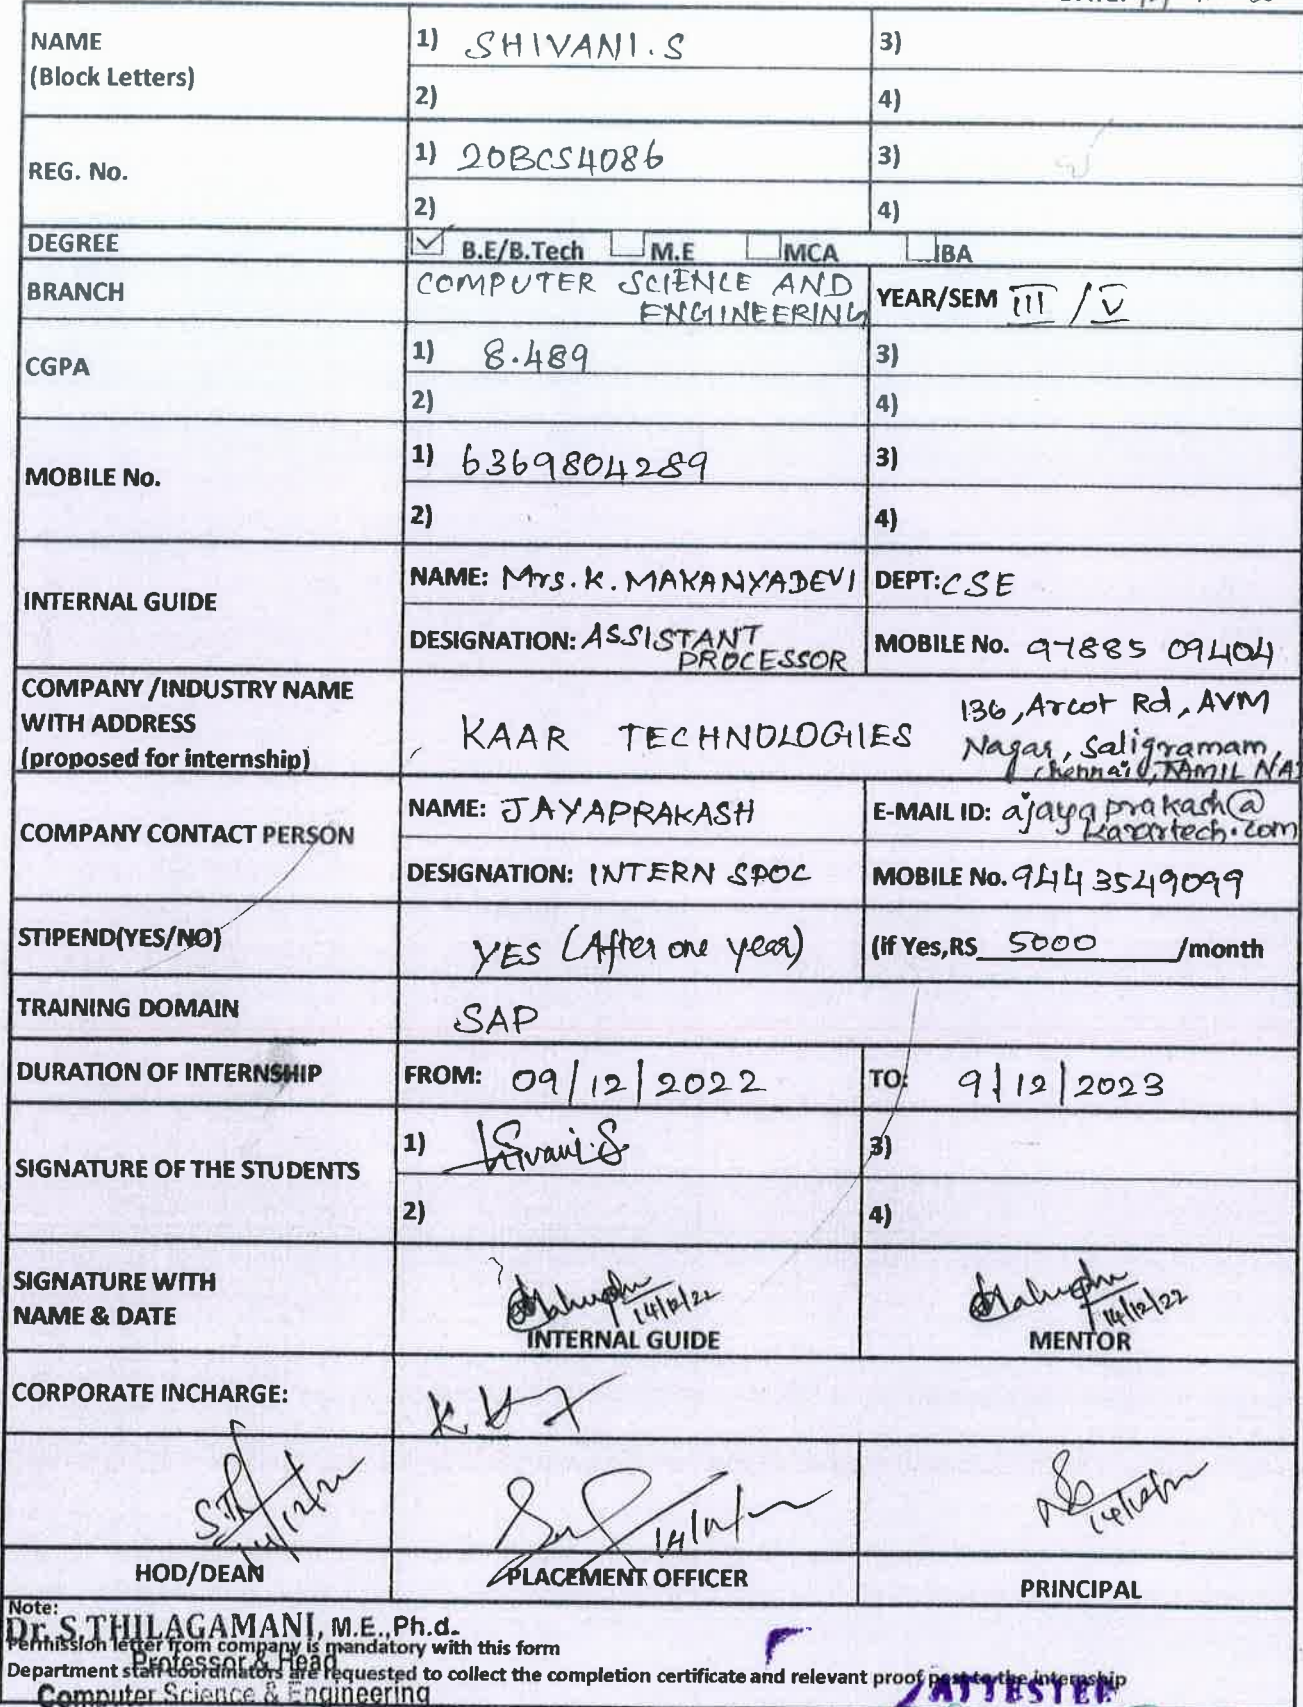 NAME
(Block Letters)
1) SHIVANI.S
3)
2)
4)
REG. No.
1) 20BCS4086
3)
2)
4)
DEGREE
B.E/B.Tech M.E MCA BA
BRANCH
COMPUTER SCIENCE AND
ENGINEERING
YEAR/SEM III / V
CGPA
1) 8.489
3)
2)
4)
MOBILE No.
1) 6369804289
3)
2)
4)
INTERNAL GUIDE
NAME: Mrs. K. MAKANYADEVI
DEPT: CSE
DESIGNATION: ASSISTANT
PROCESSOR
MOBILE No. 97885 09404
COMPANY /INDUSTRY NAME
WITH ADDRESS
(proposed for internship)
KAAR TECHNOLOGIES
136, Arcot Rd, AVM
Nagar, Saligramam,
Chennai, TAMIL NA
COMPANY CONTACT PERSON
NAME: JAYAPRAKASH
E-MAIL ID: ajayaprakash@
kaartech.com
DESIGNATION: INTERN SPOC
MOBILE No. 9443549099
STIPEND(YES/NO)
YES (After one year)
(if Yes,RS 5000 /month
TRAINING DOMAIN
SAP
DURATION OF INTERNSHIP
FROM: 09/12/2022
TO: 9/12/2023
SIGNATURE OF THE STUDENTS
1) Shivani.S
3)
2)
4)
SIGNATURE WITH
NAME & DATE
14/12/22
INTERNAL GUIDE
14/12/22
MENTOR
CORPORATE INCHARGE:
HOD/DEAN
PLACEMENT OFFICER
PRINCIPAL
Note:
Dr. S.THILAGAMANI, M.E.,Ph.d.
Permission letter from company is mandatory with this form
Professor & Head
Department staff coordinators are requested to collect the completion certificate and relevant proof post to the internship
Computer Science & Engineering
ATTESTED